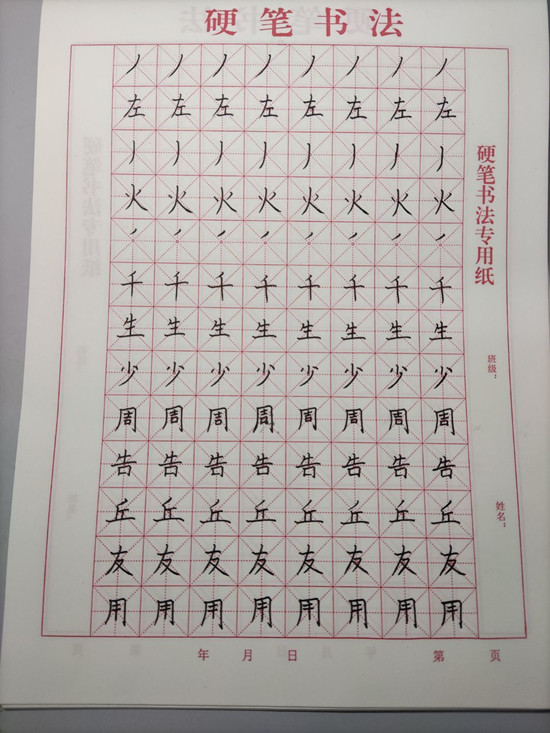 硬笔书法
丿丿丿丿丿丿丿丿
左左左左左左左左
丿丿丿丿丿丿丿丿
火火火火火火火火
丿丿丿丿丿丿丿丿
千千千千千千千千
生生生生生生生生
少少少少少少少少
周周周周周周周周
告告告告告告告告
丘丘丘丘丘丘丘丘
友友友友友友友友
用用用用用用用用
硬笔书法专用纸
班级：
姓名：
年 月 日 第 页